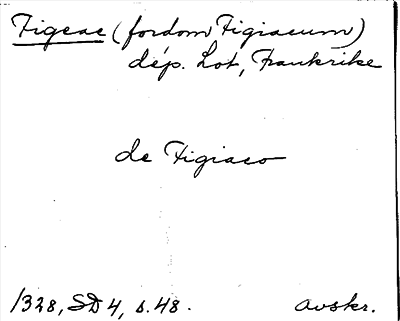 Figeac (fordom Figiacum)
dép. Lot, Frankrike
de Figiaco
1328, SD 4, s. 48. avskr.